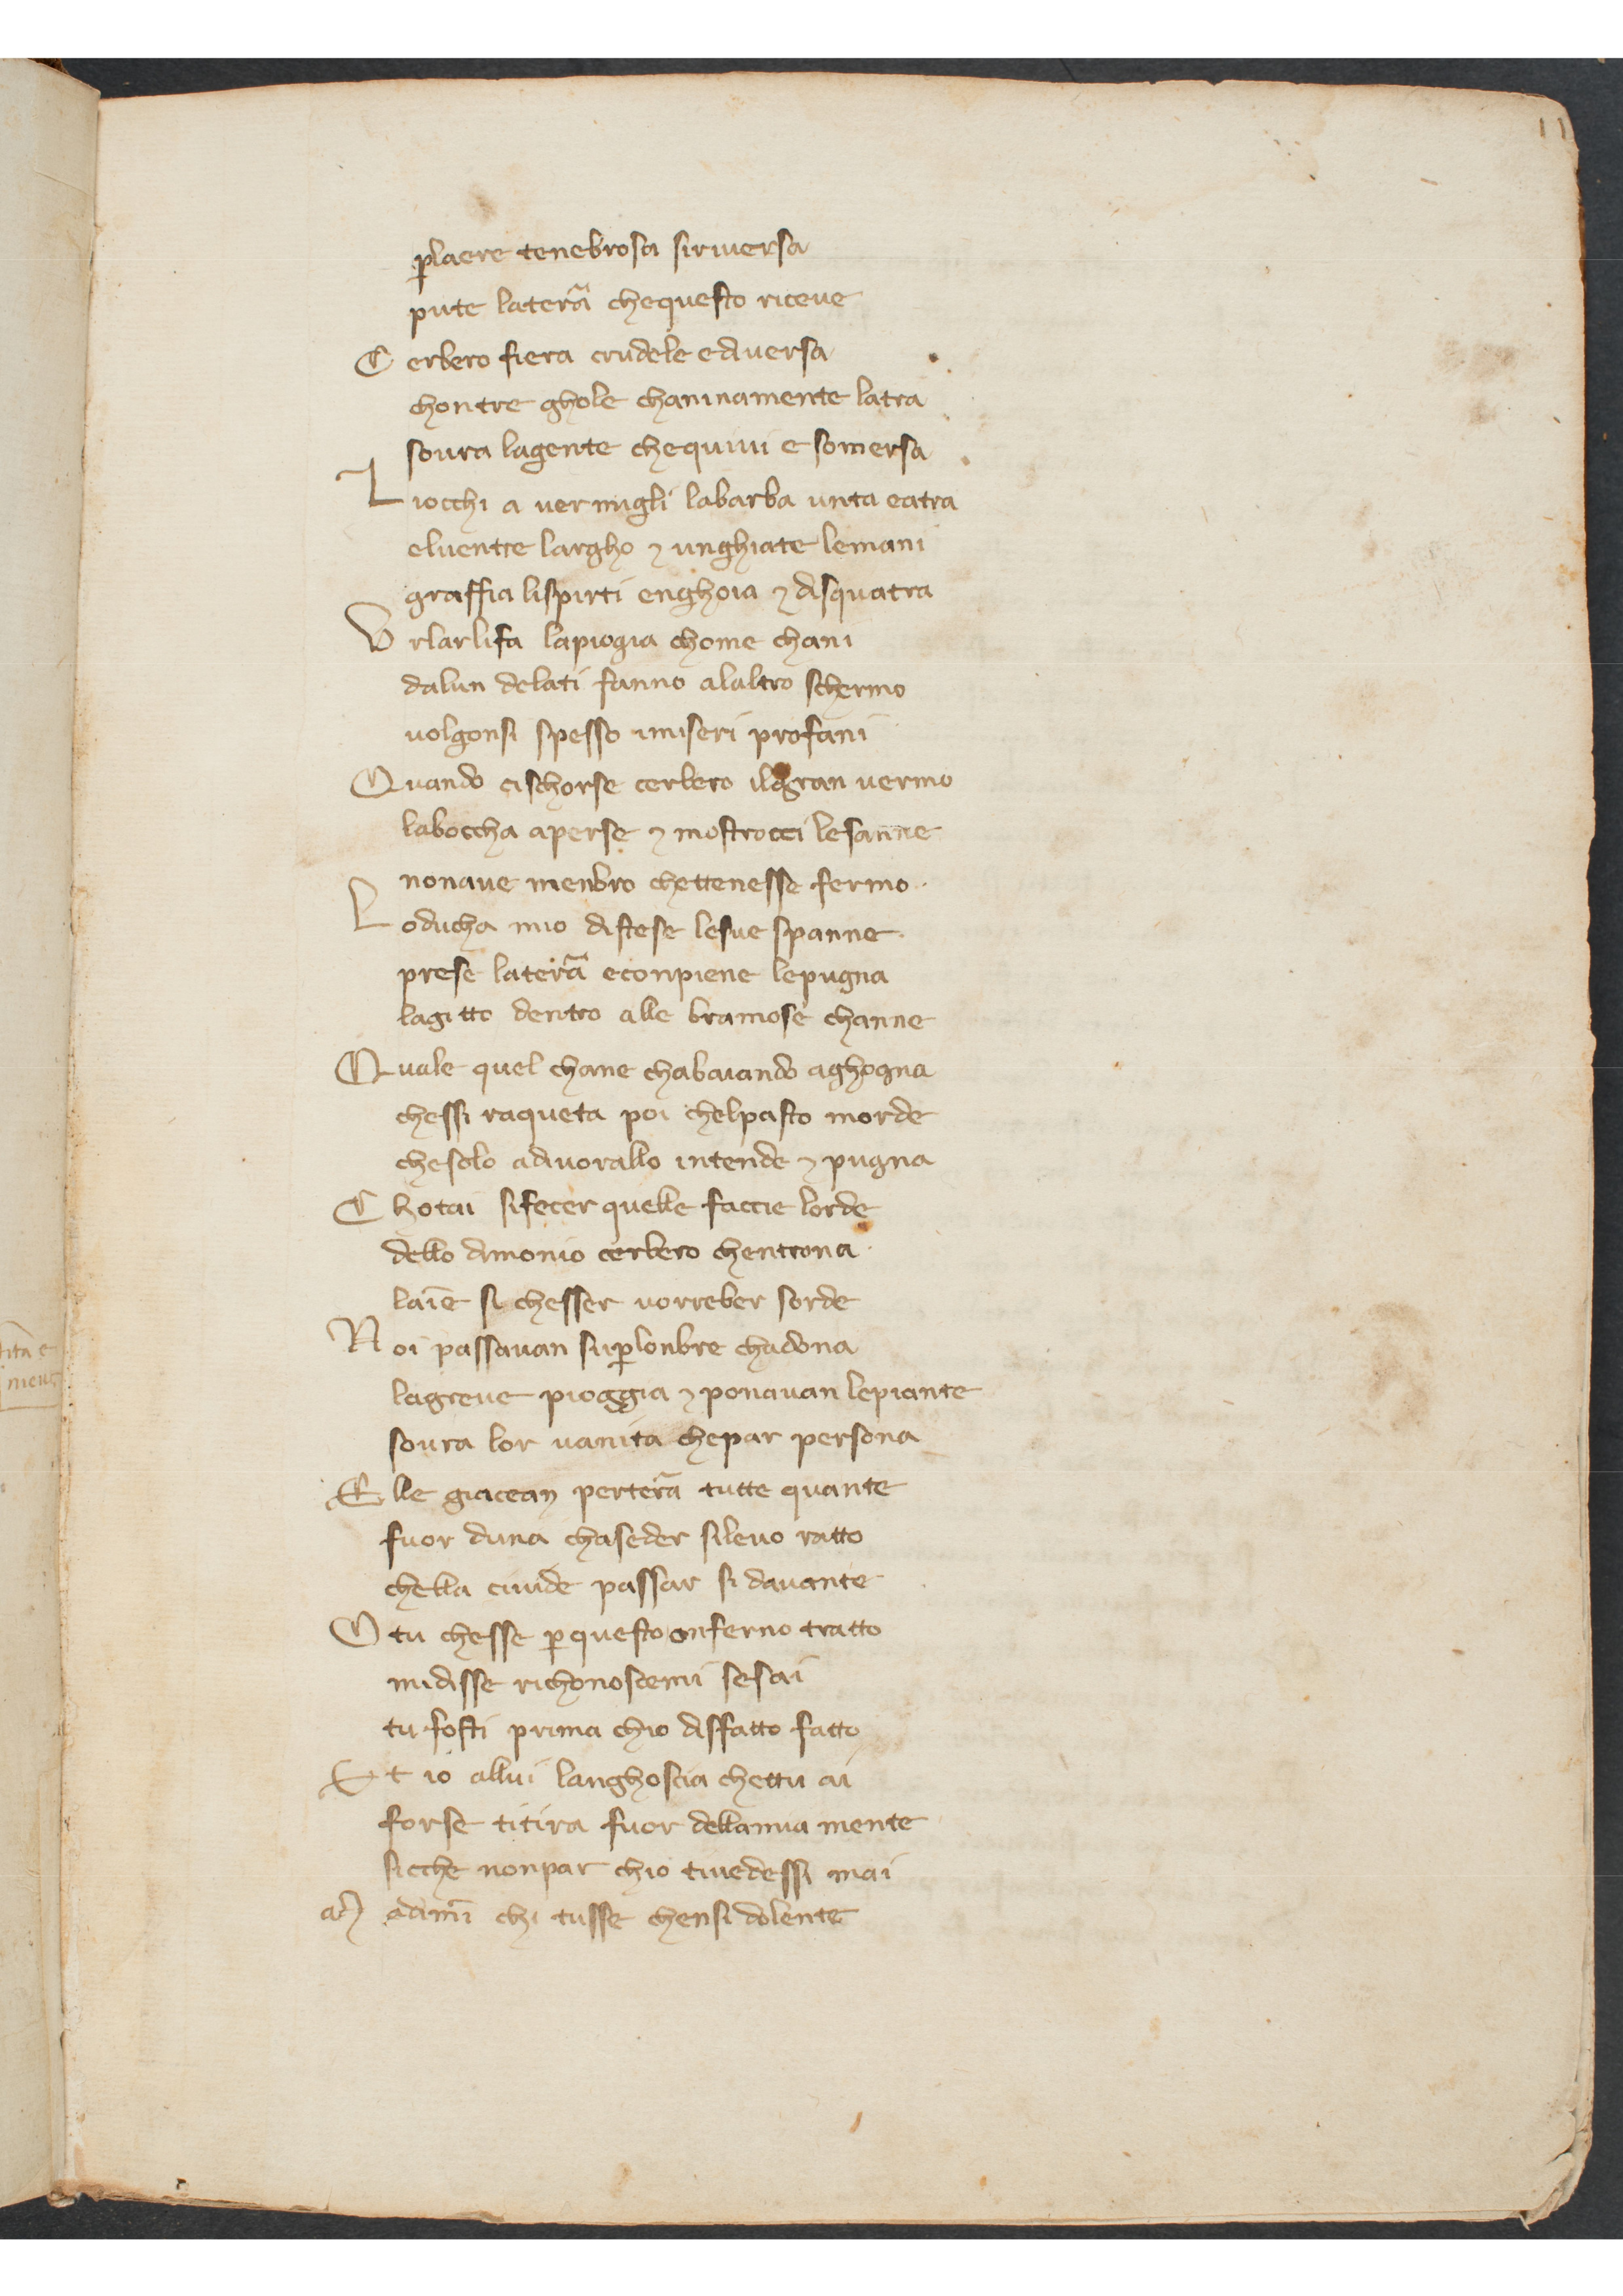 11
ꝑlaere tenebrosa siriuersa
pute laterã chequesto riceue
C erbero fiera crudele ediuersa
chontre ghole chaninamente latra
soura lagente chequiui e somersa
L iocchi a uermigli labarba unta eatra
eluentre largho ⁊ unghiate lemani
graffia lispirti enghoia ⁊ disquatra
U rlarlifa lapiogia chome chani
dalun delati fanno alaltro schermo
uolgonsi spesso imiseri profani
Q uando cischorse cerbero ilgran uermo
laboccha aperse ⁊ mostrocci lesanne
nonaue menbro chettenesse fermo
L oducha mio distese lesue spanne
prese laterã econpiene lepugna
lagitto dentro alle bramose channe
Q uale quel chane chabaiando aghogna
chessi raqueta poi chelpasto morde
chesolo adiuorallo intende ⁊ pugna
C hotai sifecer quelle faccie lorde
dello dimonio cerbero chentrona
laĩe si chesser uorreber sorde
N oi passauan suꝑlonbre chadona
lagreue pioggia ⁊ ponauan lepiante
soura lor uanita chepar persona
E lle giacean perterã tutte quante
fuor duna chaseder sileuo ratto
chella ciuide passar si dauante
O tu chesse ꝑquesto onferno tratto
midisse richonoscemi sesai
tu fosti prima chio disfatto fatto
E t io allui langhoscia chettu ai
forse titira fuor dellamia mente
sicche nonpar chio tiuedessi mai
adimĩ chi tusse chensi dolente